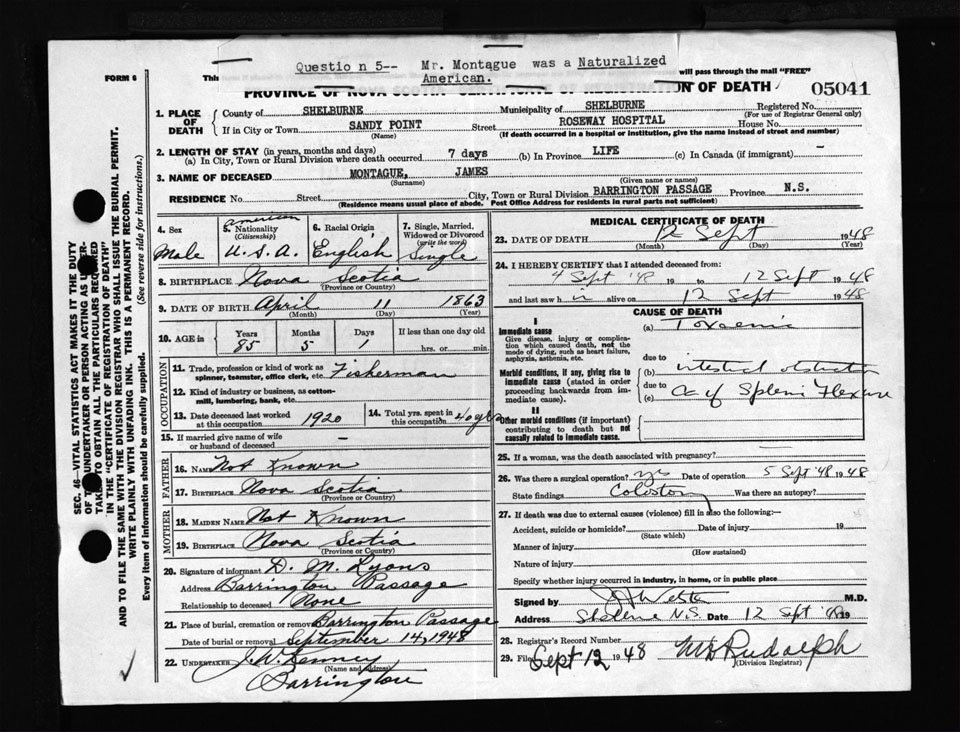 Questio n 5-- Mr. Montague was a Naturalized
American.
FORM 6 This will pass through the mail "FREE"
PROVINCE OF NOVA SCOTIA CERTIFICATE OF REGISTRATION OF DEATH 05041
1. PLACE OF DEATH County of SHELBURNE Municipality of SHELBURNE Registered No.
(For use of Registrar General only)
If in City or Town SANDY POINT Street ROSEWAY HOSPITAL House No.
(Name) (If death occurred in a hospital or institution, give the name instead of street and number)
2. LENGTH OF STAY (in years, months and days)
(a) In City, Town or Rural Division where death occurred 7 days (b) In Province LIFE (c) In Canada (if immigrant) -
3. NAME OF DECEASED MONTAGUE, JAMES
(Surname) (Given name or names)
RESIDENCE No. Street City, Town or Rural Division BARRINGTON PASSAGE Province N.S.
(Residence means usual place of abode. Post Office Address for residents in rural parts not sufficient)
4. Sex Male
5. Nationality (Citizenship) American U.S.A.
6. Racial Origin English
7. Single, Married, Widowed or Divorced (write the word) Single
8. BIRTHPLACE Nova Scotia
(Province or Country)
9. DATE OF BIRTH April 11 1863
(Month) (Day) (Year)
10. AGE in Years Months Days If less than one day old
85 5 1 hrs. or min.
OCCUPATION
11. Trade, profession or kind of work as spinner, teamster, office clerk, etc. Fisherman
12. Kind of industry or business, as cotton-mill, lumbering, bank, etc.
13. Date deceased last worked at this occupation 1920
14. Total yrs. spent in this occupation 40 yrs
15. If married give name of wife or husband of deceased -
FATHER
16. NAME Not Known
17. BIRTHPLACE Nova Scotia
(Province or Country)
MOTHER
18. MAIDEN NAME Not Known
19. BIRTHPLACE Nova Scotia
(Province or Country)
20. Signature of informant D. M. Lyons
Address Barrington Passage
Relationship to deceased None
21. Place of burial, cremation or removal Barrington Passage
Date of burial or removal September 14, 1948
22. UNDERTAKER J. W. Kenney
(Name and Address)
Barrington
MEDICAL CERTIFICATE OF DEATH
23. DATE OF DEATH 12 Sept 1948
(Month) (Day) (Year)
24. I HEREBY CERTIFY that I attended deceased from:
4 Sept '48 19 to 12 Sept 1948
and last saw h im alive on 12 Sept 1948
CAUSE OF DEATH
I
Immediate cause
Give disease, injury or complication which caused death, not the mode of dying, such as heart failure, asphyxia, asthenia, etc.
(a) Toxaemia
due to
Morbid conditions, if any, giving rise to immediate cause (stated in order proceeding backwards from immediate).
(b) intestinal obstruction
due to
(c) Ca of Splenic Flexure
II
Other morbid conditions (if important) contributing to death but not causally related to immediate cause.
25. If a woman, was the death associated with pregnancy?
26. Was there a surgical operation? yes Date of operation 5 Sept '48 1948
State findings Was there an autopsy?
27. If death was due to external causes (violence) fill in also the following:-
Accident, suicide or homicide? Date of injury 19
(State which)
Manner of injury
(How sustained)
Nature of injury
Specify whether injury occurred in industry, in home, or in public place
Signed by M.D.
Address N.S. Date 12 Sept '48 19
28. Registrar's Record Number
29. Filed Sept 12 1948 Rudolph
(Division Registrar)
SEC. 46-VITAL STATISTICS ACT MAKES IT THE DUTY
OF THE UNDERTAKER OR PERSON ACTING AS UNDER-
TAKER TO OBTAIN ALL THE PARTICULARS REQUIRED
IN THE "CERTIFICATE OF REGISTRATION OF DEATH"
AND TO FILE THE SAME WITH THE DIVISION REGISTRAR WHO SHALL ISSUE THE BURIAL PERMIT.
WRITE PLAINLY WITH UNFADING INK. THIS IS A PERMANENT RECORD.
Every item of information should be carefully supplied. (See reverse side for instructions.)